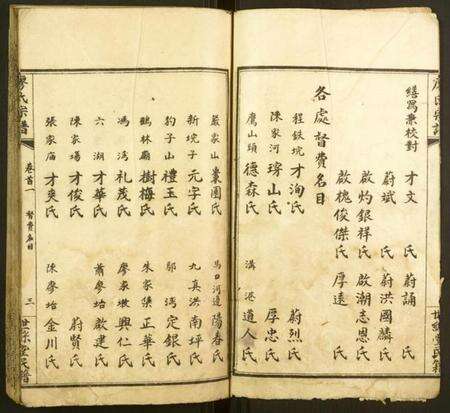 繕寫兼校對
才文氏 蔚誦氏
蔚斌氏 蔚洪國麟氏
啟灼銀祥氏 啟潮志恩氏
啟槐俊傑氏 厚遠氏
各處督費名目
程鉄垸 才洵氏 蔚烈氏
陳家河 瑃山氏 厚忠氏
鷹山頭 德森氏 溝港 道人氏
嚴家山 業國氏 馬口河邊 陽春氏
新垸子 元字氏 九真洪 南坪氏
豹子山 禮玉氏 鄔溈 定銀氏
鵝林廟 樹梅氏 朱家集 正華氏
馮溈 禮茂氏 廖家墩 興仁氏
六湖 才華氏 蕭廖坮 啟建氏
陳家場 才俊氏 蔚賢氏
張家廟 才爽氏 陳廖坮 金川氏
廖氏宗譜 卷首一 督費名目 三 世綵堂民譜